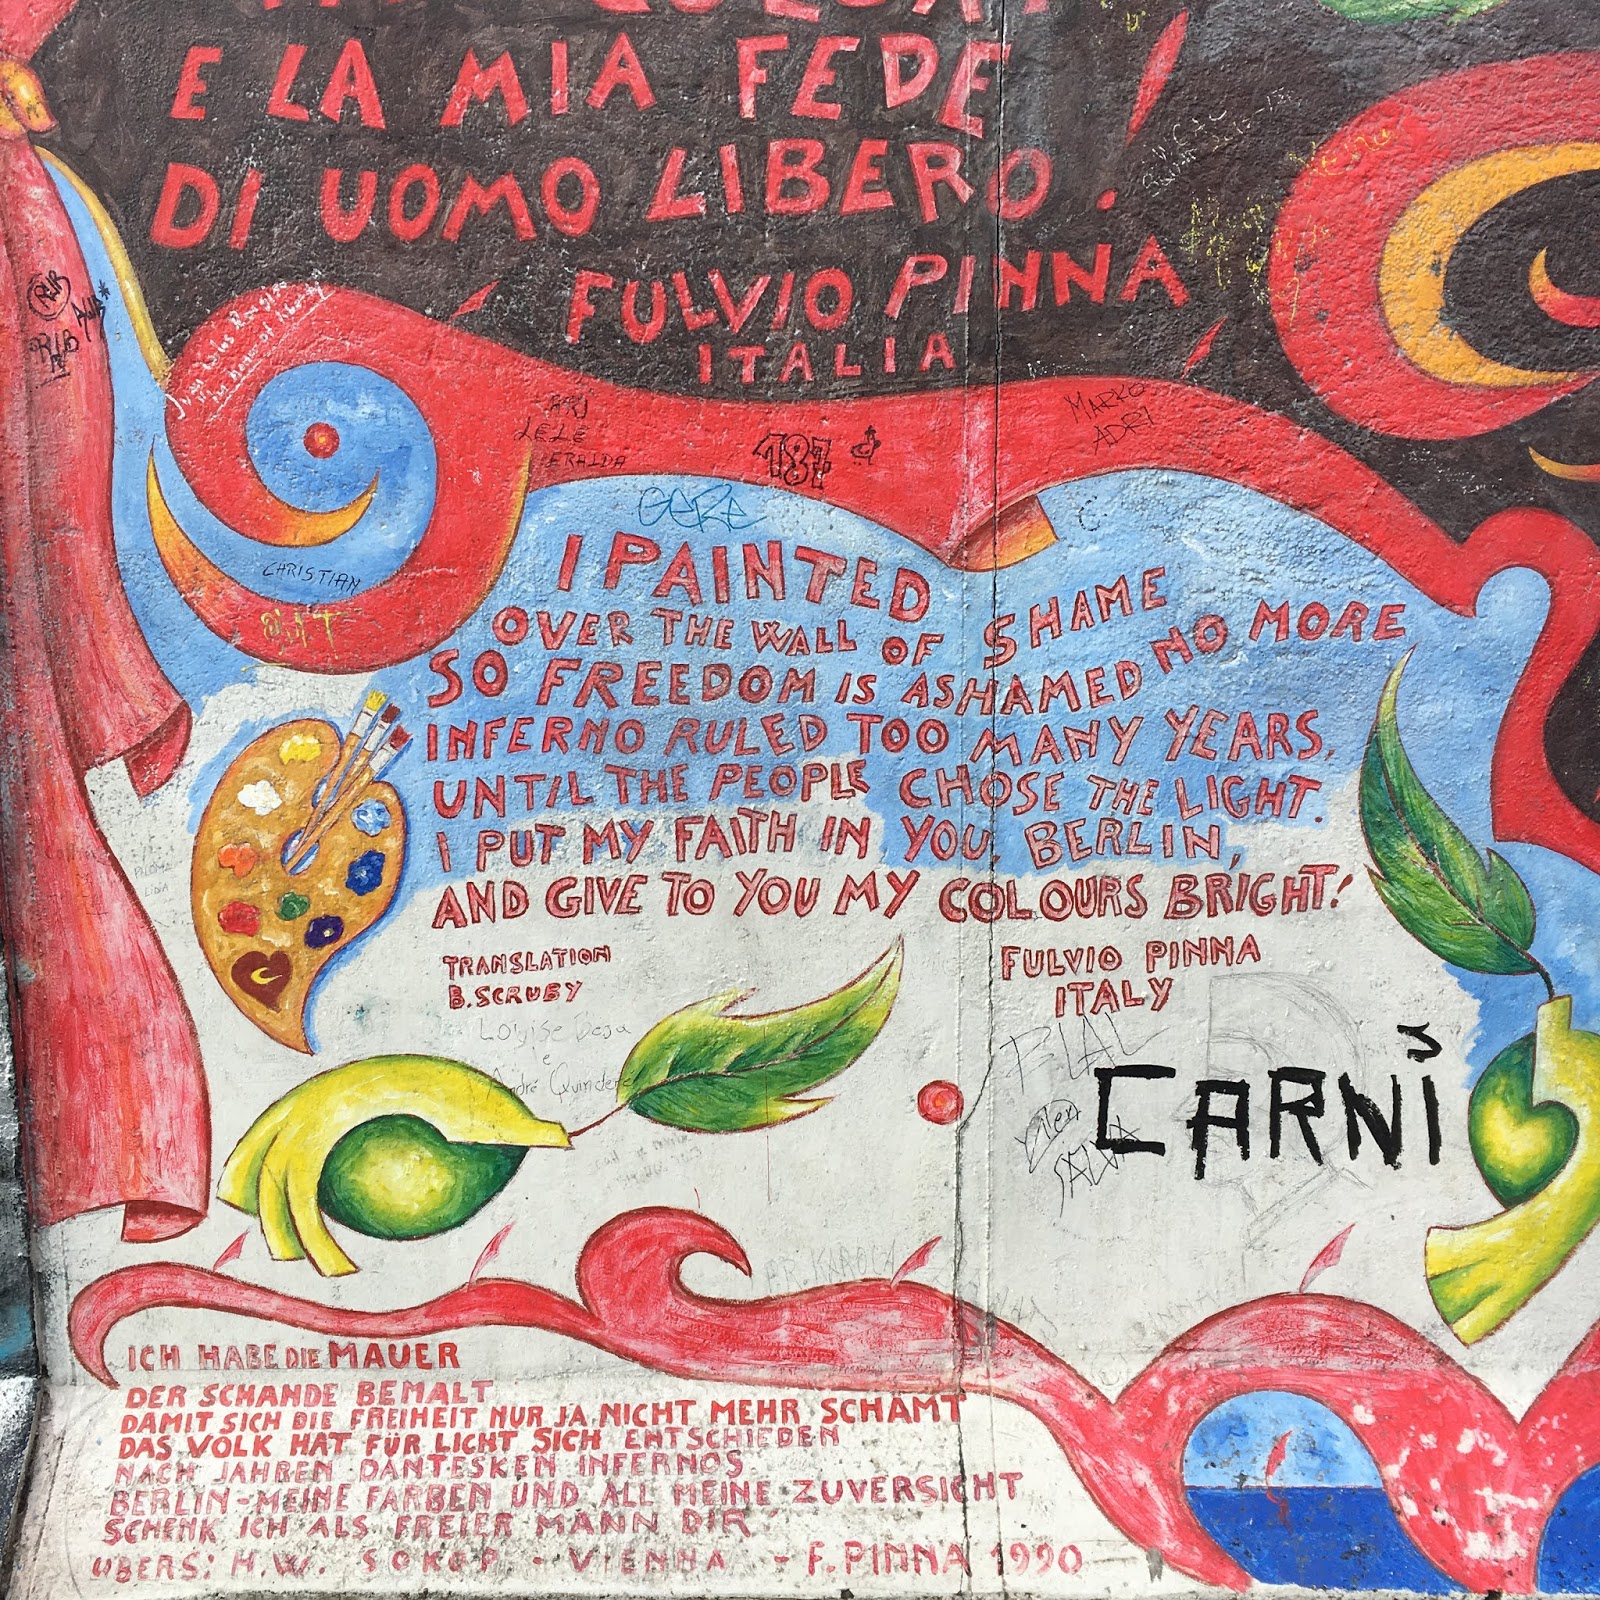 E LA MIA FEDE
DI UOMO LIBERO!
FULVIO PINNA
ITALIA
ARJ
LELE
ERALDA
187
MARKO
ADRI
GERE
CHRISTIAN
I PAINTED
OVER THE WALL OF SHAME
SO FREEDOM IS ASHAMED NO MORE
INFERNO RULED TOO MANY YEARS.
UNTIL THE PEOPLE CHOSE THE LIGHT.
I PUT MY FAITH IN YOU, BERLIN,
AND GIVE TO YOU MY COLOURS BRIGHT!
TRANSLATION
B. SCRUBY
FULVIO PINNA
ITALY
PALOMA
LIDIA
e
André
CARNİ
Alex
KAROLA
ICH HABE DIE MAUER
DER SCHANDE BEMALT
DAMIT SICH DIE FREIHEIT NUR JA NICHT MEHR SCHAMT
DAS VOLK HAT FÜR LICHT SICH ENTSCHIEDEN
NACH JAHREN DANTESKEN INFERNOS
BERLIN-MEINE FARBEN UND ALL MEINE ZUVERSICHT
SCHENK ICH ALS FREIER MANN DIR
UBERS: H.W. SOKOP - VIENNA - F. PINNA 1990